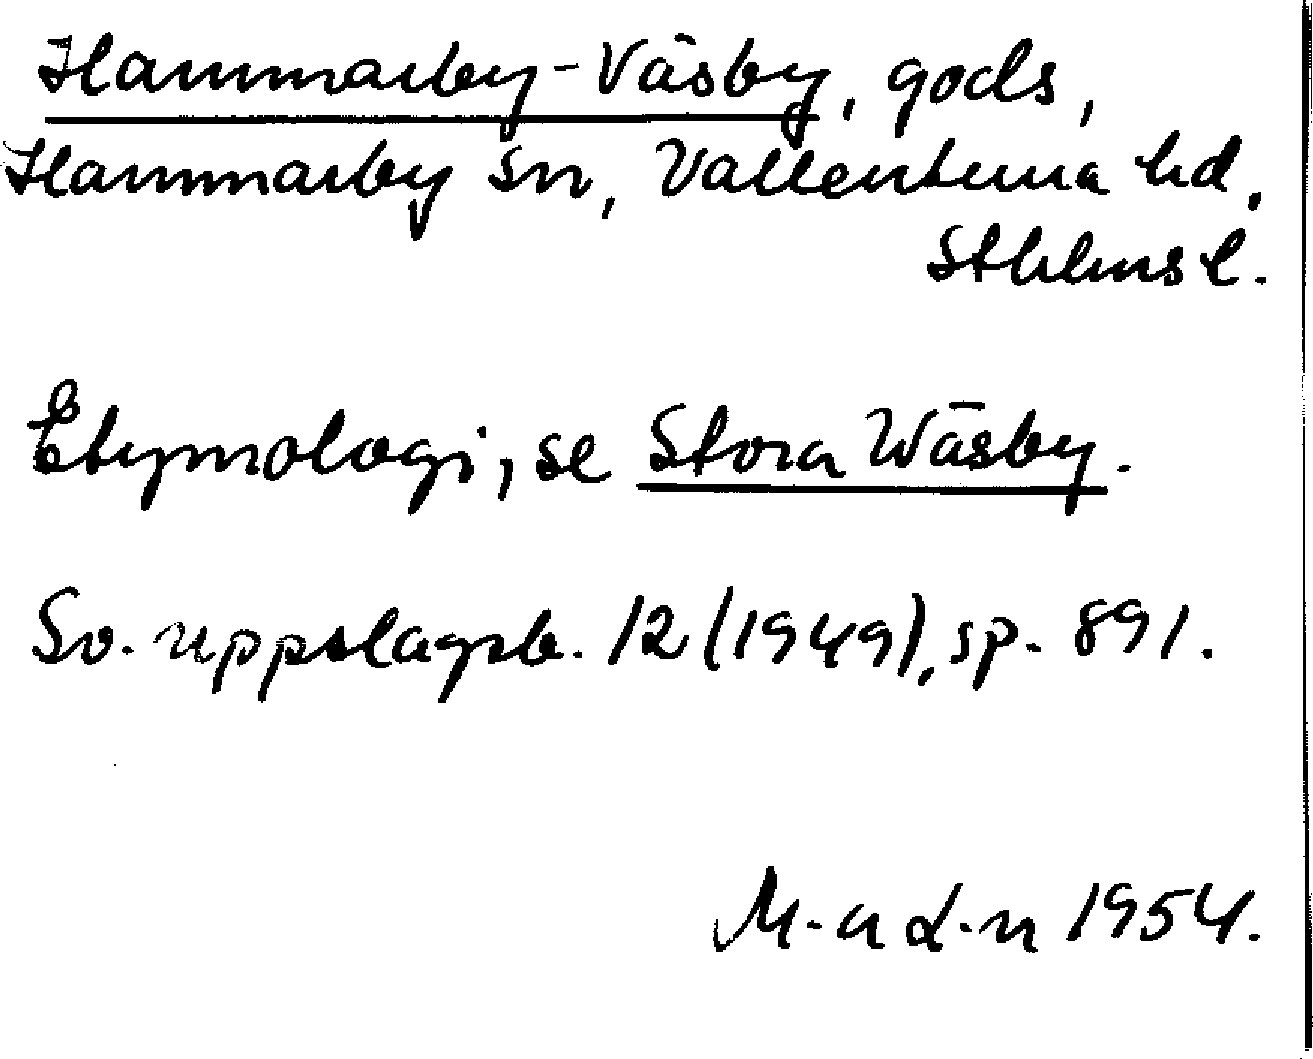 Hammarby-Väsby, gods,
Hammarby sn, Vallentuna hd,
Sthlms l.
Etymologi, se Stora Wäsby.
Sv. uppslagsb. 12 (1949), sp. 891.
1954.